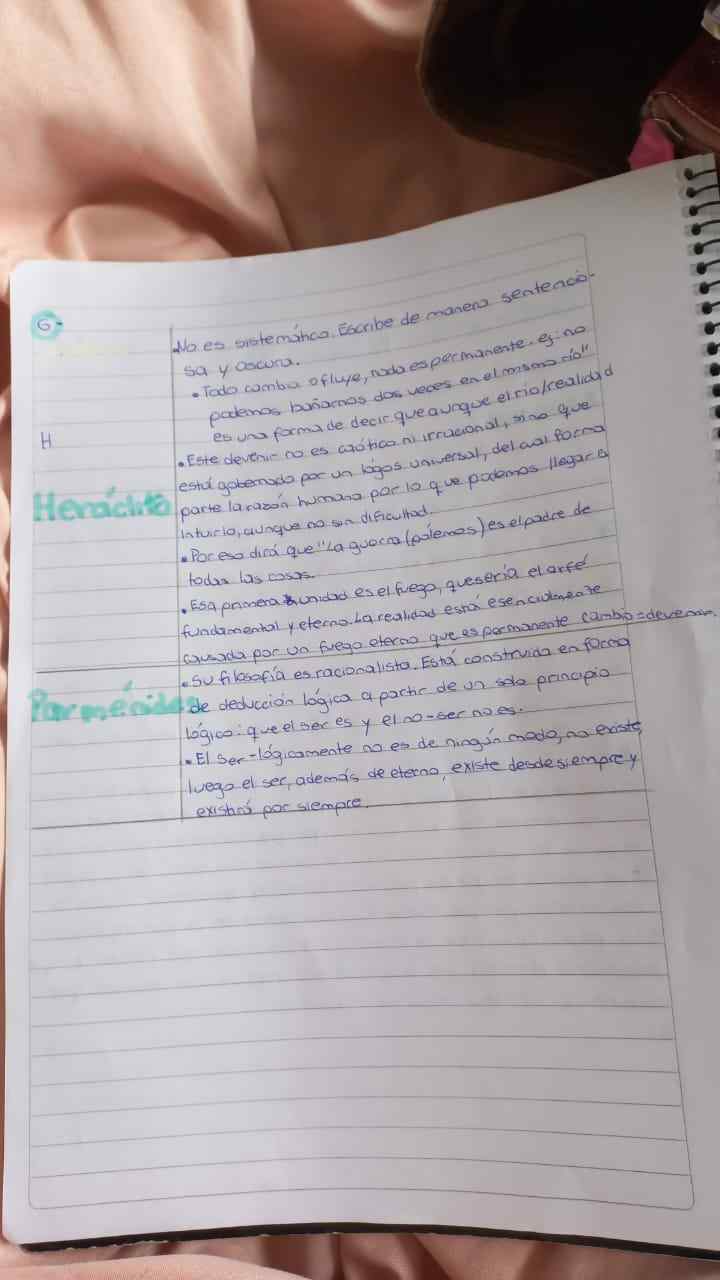 6-
No es sistemático. Escribe de manera sentencio-
sa y oscura.
• Todo cambia o fluye, nada es permanente. ej: no
podemos bañarnos dos veces en el mismo río"
es una forma de decir que aunque el río/realidad
H
• Este devenir no es caótico ni irracional, sino que
está gobernado por un lógos universal, del cual forma
Heráclito
parte la razón humana por lo que podemos llegar a
intuirlo, aunque no sin dificultad.
• Por eso dirá que "La guerra (pólemos) es el padre de
todas las cosas.
• Esa primera unidad es el fuego, que sería el arjé
fundamental y eterno. La realidad está esencialmente
causada por un fuego eterno que es permanente cambio = devenir.
• Su filosofía es racionalista. Está construida en forma
Parménides
de deducción lógica a partir de un solo principio
lógico: que el ser es y el no-ser no es.
• El Ser-lógicamente no es de ningún modo, no existe,
luego el ser, además de eterno, existe desde siempre y
existirá por siempre.